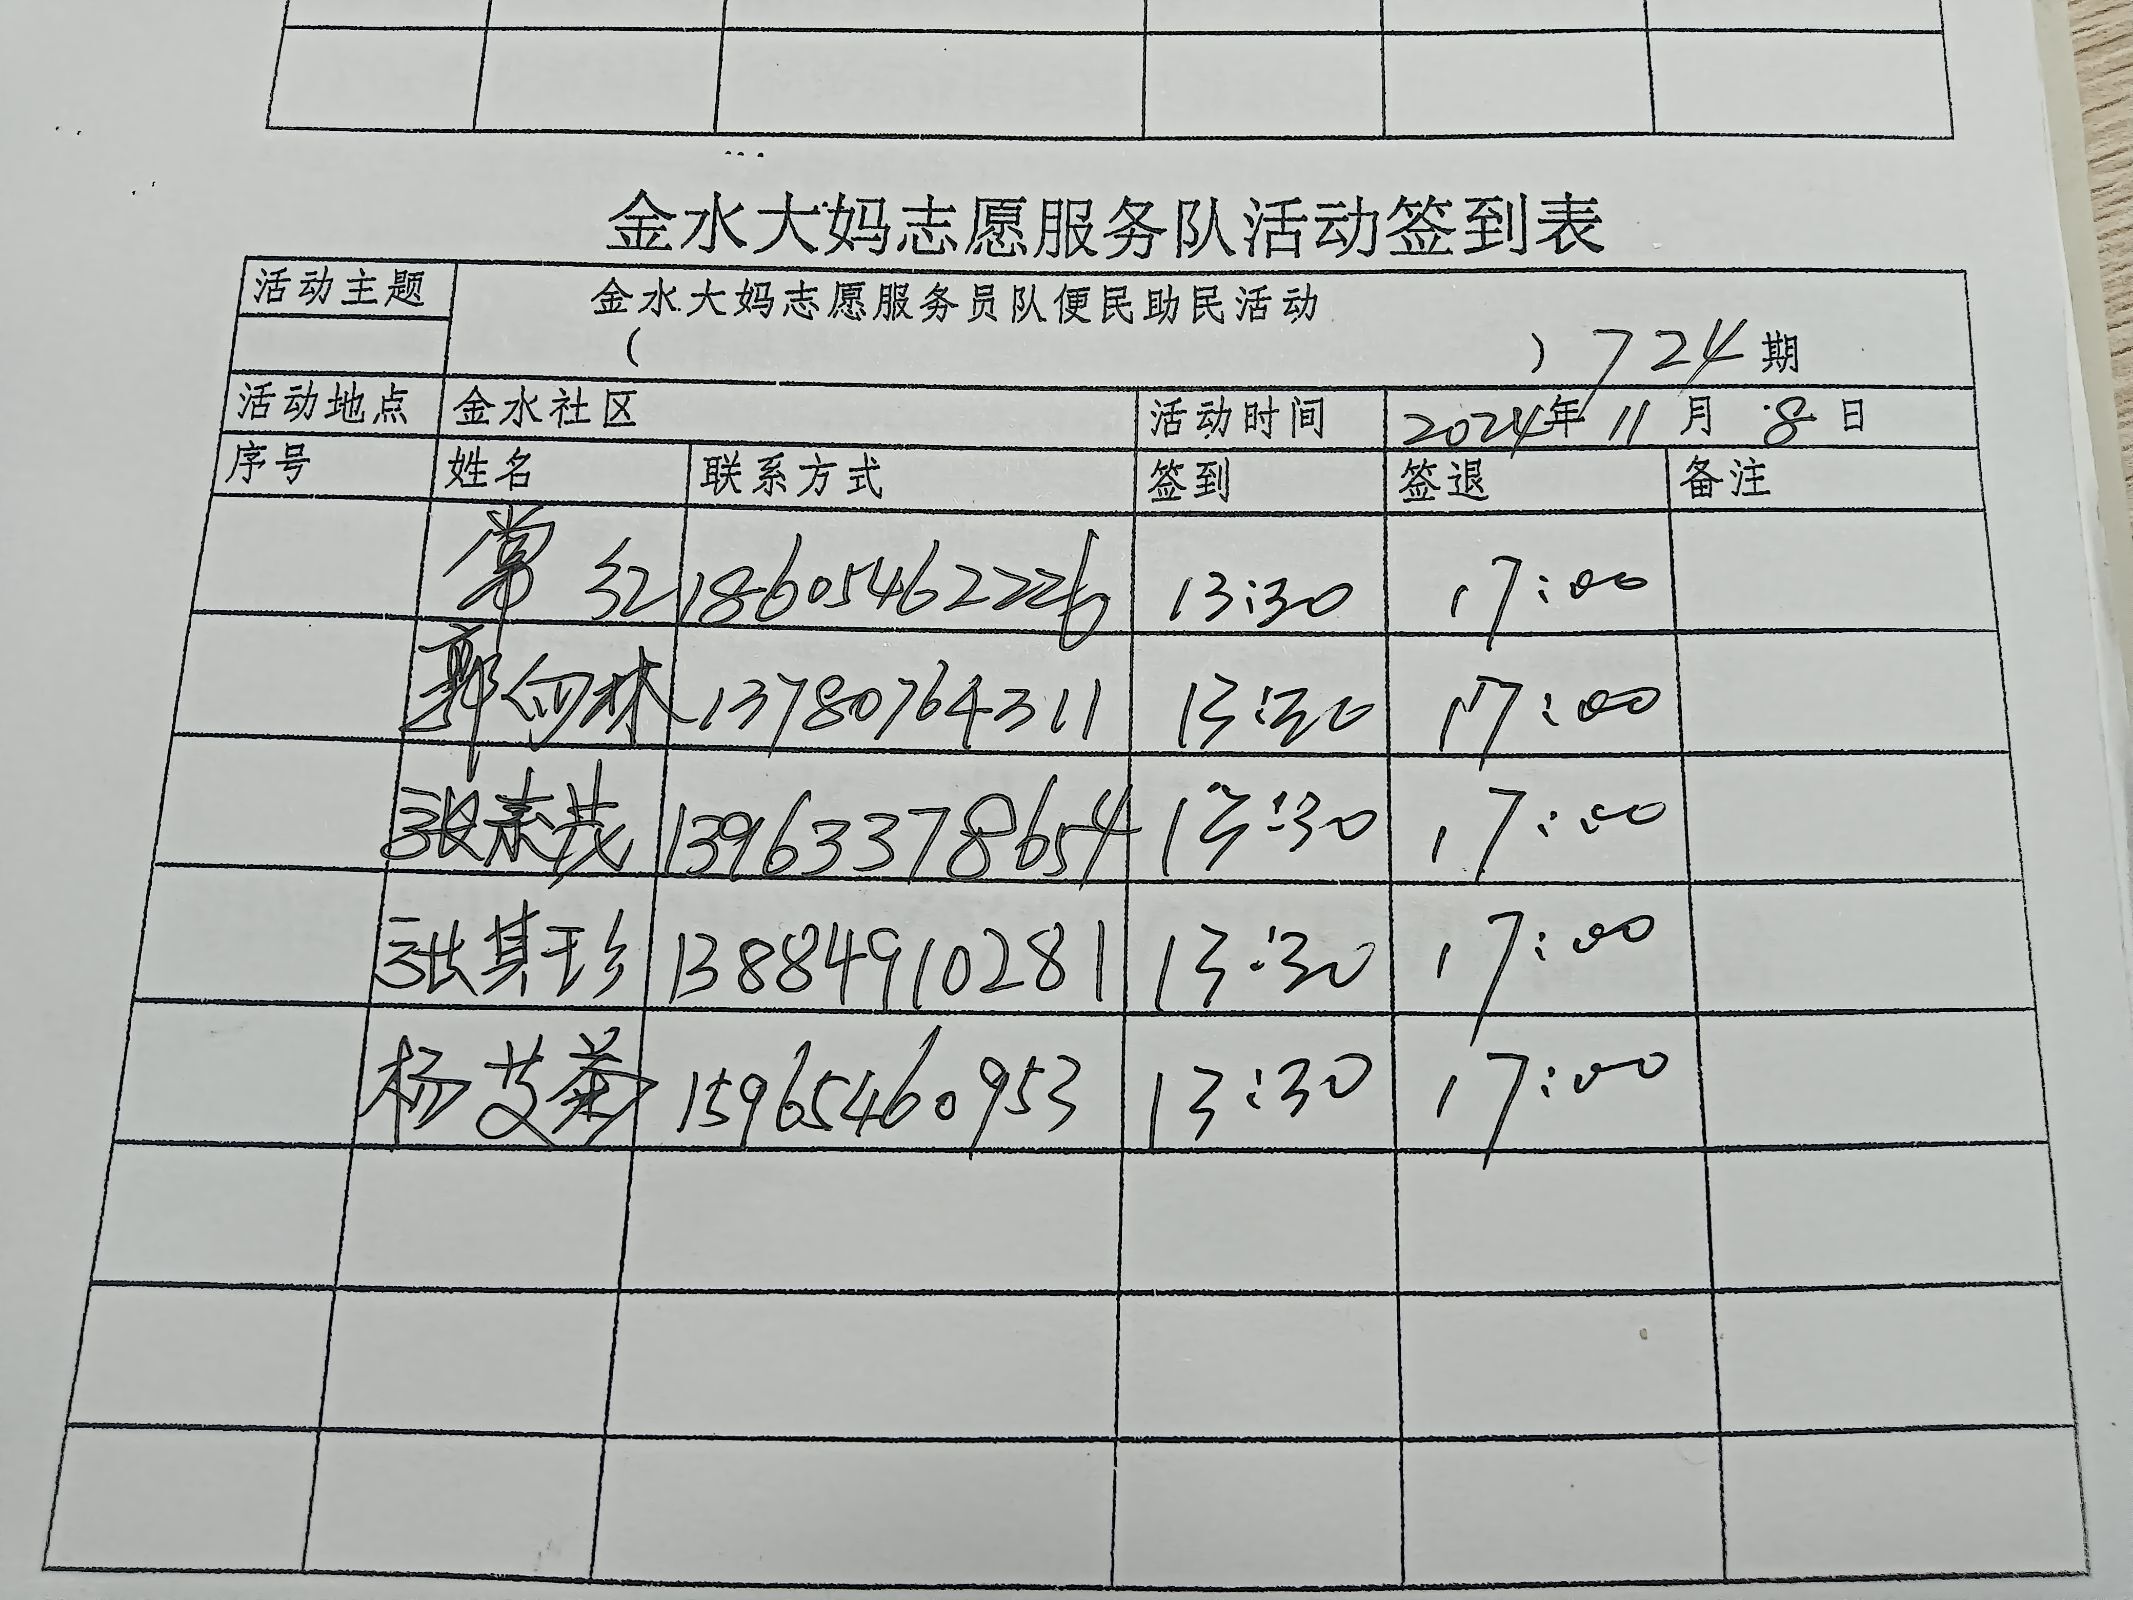 金水大妈志愿服务队活动签到表
活动主题 金水大妈志愿服务员队便民助民活动
( ) 724期
活动地点 金水社区 活动时间 2024年 11月 8日
序号 姓名 联系方式 签到 签退 备注
常红 18605462226 13:30 17:00
郭向林 13780764311 13:30 17:00
张素茂 13963378654 13:30 17:00
张其珍 13884910281 13:30 17:00
杨艾菊 15965460953 13:30 17:00